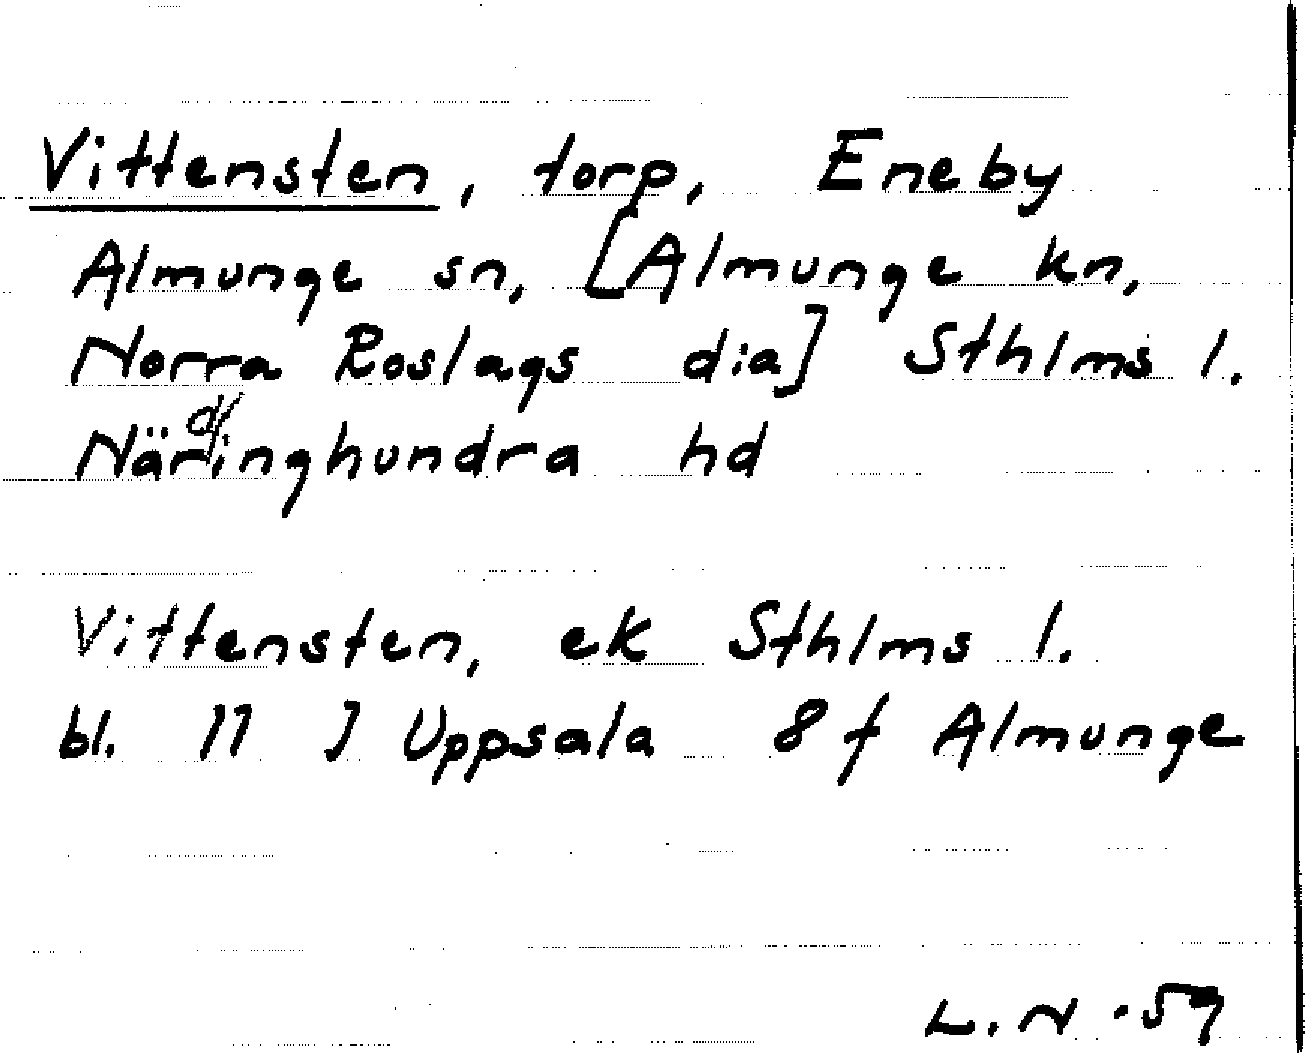 Vittensten, torp, Eneby
Almunge sn, [Almunge kn,
Norra Roslags dia] Sthlms l.
Närdinghundra hd
Vittensten, ek Sthlms l.
bl. 11 J Uppsala 8 f Almunge
L. N -59